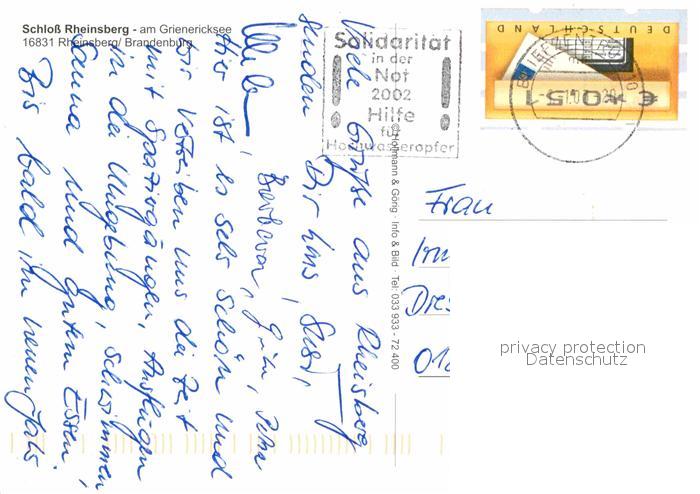 Schloß Rheinsberg - am Grienericksee
16831 Rheinsberg/ Brandenburg
Viele Grüße aus Rheinsberg
senden Dir
Barbara,
Hier ist es sehr schön und
wir vertreiben uns die Zeit
mit Spaziergängen, Ausflügen
in die Umgebung, Schwimmen,
Sauna und gutem Essen.
Bis bald im neuen Jahr
© Hofmann & Görig · Info & Bild · Tel: 033 933 - 72 400
Solidarität
in der
Not
2002
Hilfe
für
Hochwasseropfer
DEUTSCHLAND
€*0,51
Frau
Dres
01
privacy protection
Datenschutz